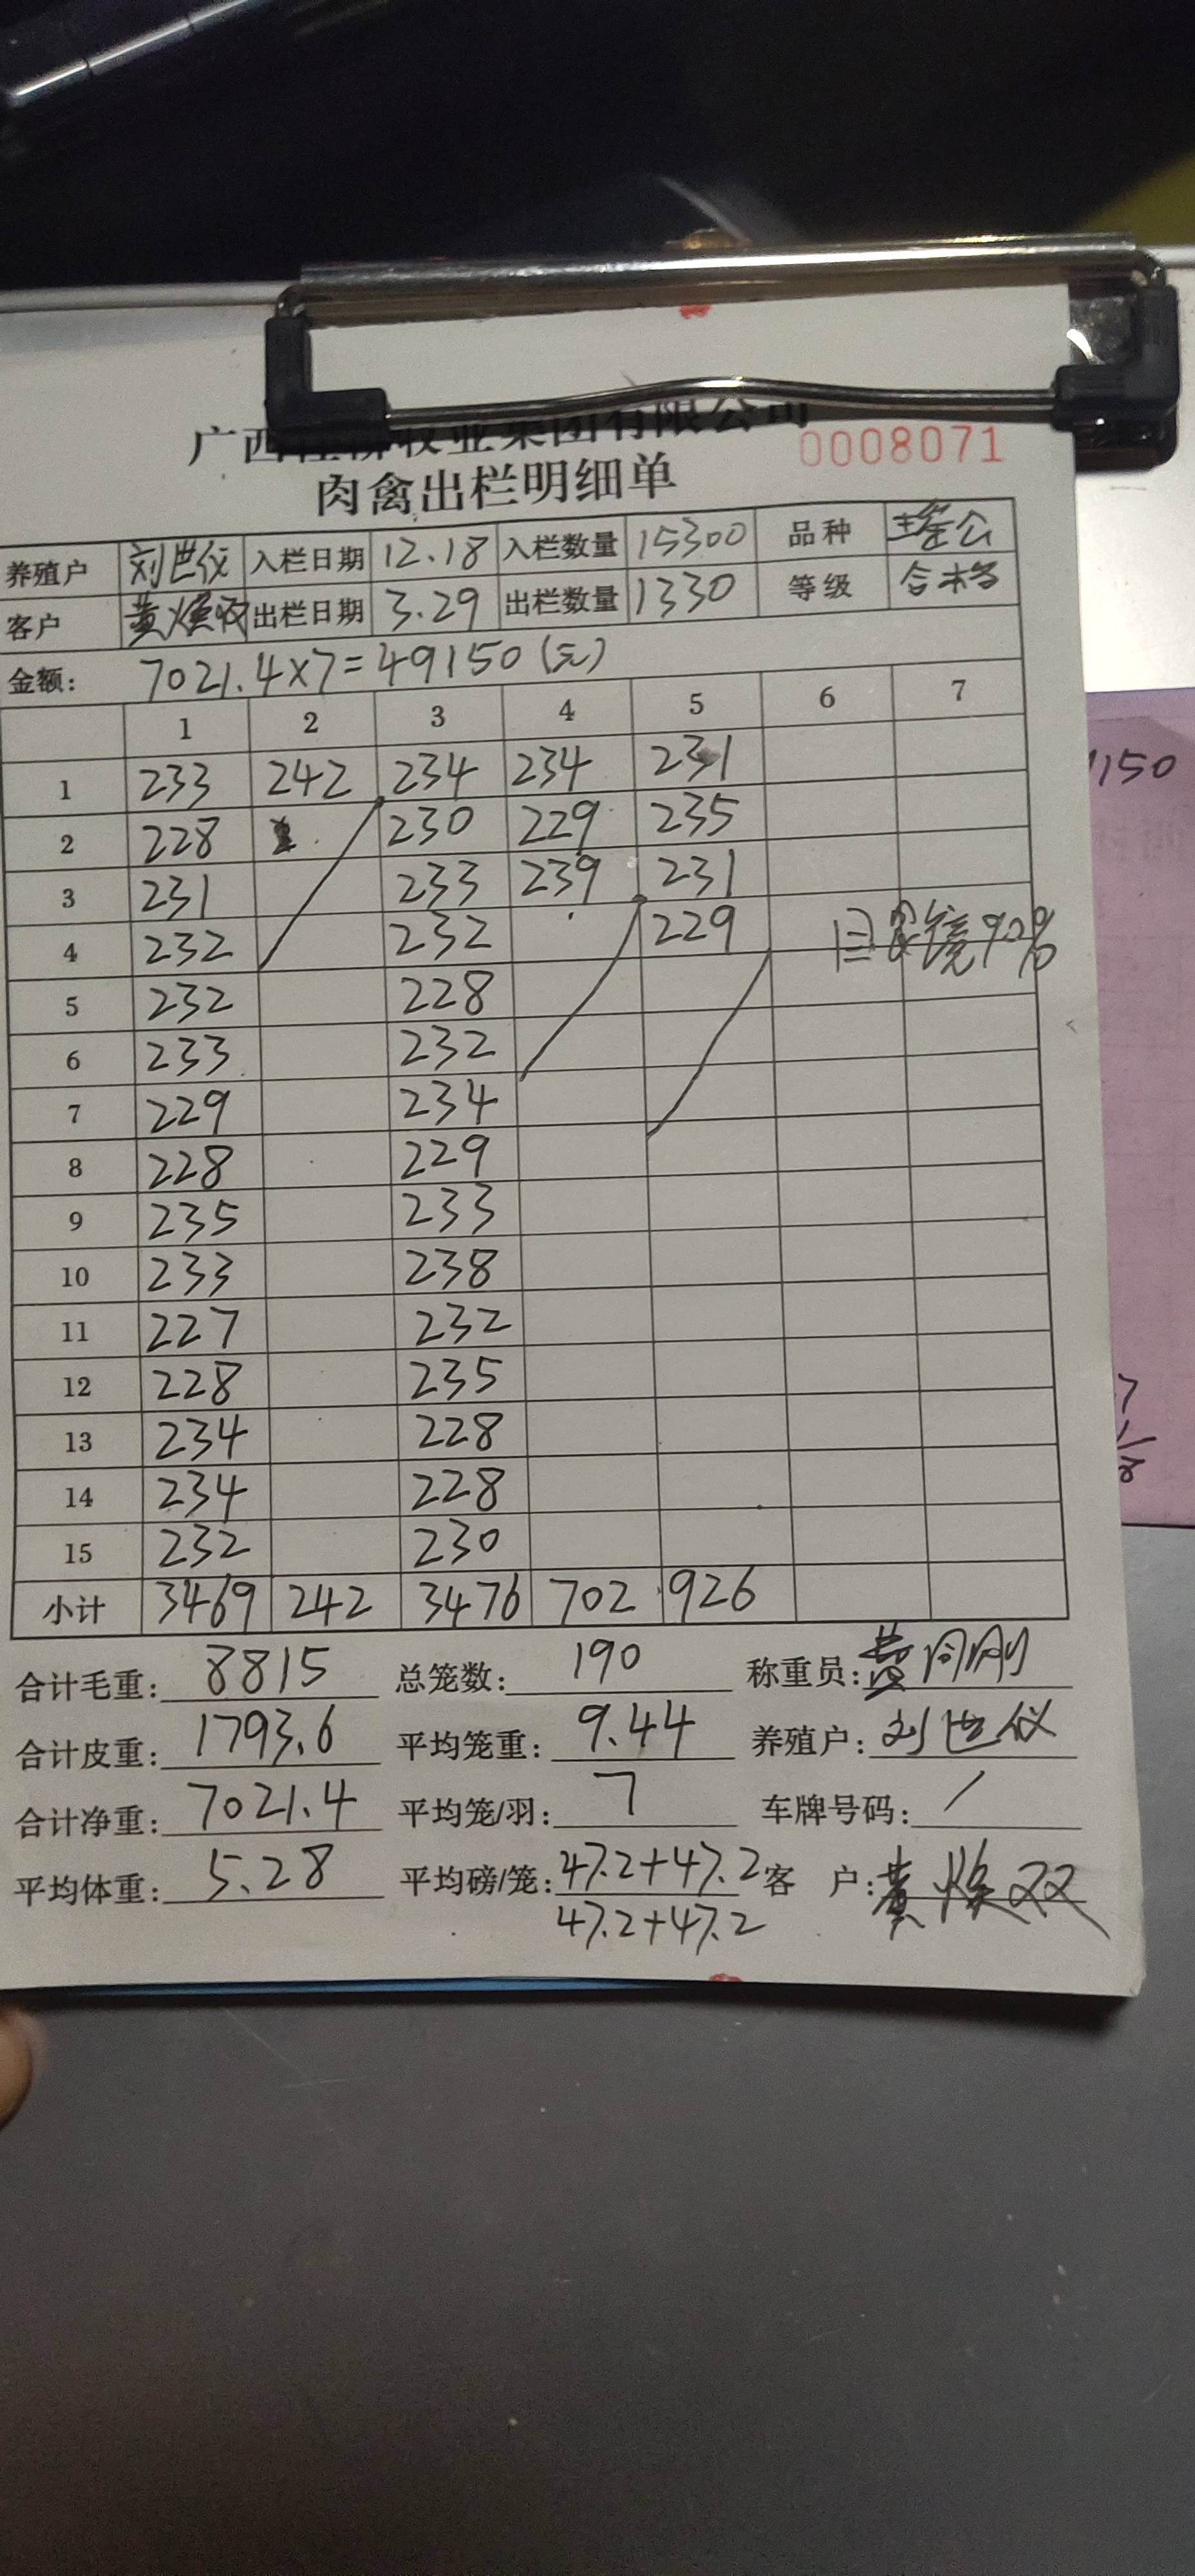 广西桂柳牧业集团有限公司
0008071
肉禽出栏明细单
养殖户 刘世仪 入栏日期 12.18 入栏数量 15300 品种 公
客户 黄焕双 出栏日期 3.29 出栏数量 1330 等级 合格
金额: 7021.4×7=49150(元)
1 2 3 4 5 6 7
1 233 242 234 234 231
2 228 230 229 235
3 231 233 239 231
4 232 232 229 目 镜90%
5 232 228
6 233 232
7 229 234
8 228 229
9 235 233
10 233 238
11 227 232
12 228 235
13 234 228
14 234 228
15 232 230
小计 3469 242 3476 702 926
合计毛重: 8815 总笼数: 190 称重员:
合计皮重: 1793.6 平均笼重: 9.44 养殖户: 刘世仪
合计净重: 7021.4 平均笼/羽: 7 车牌号码: /
平均体重: 5.28 平均磅/笼: 47.2+47.2 客 户: 黄焕双
47.2+47.2
1150
7